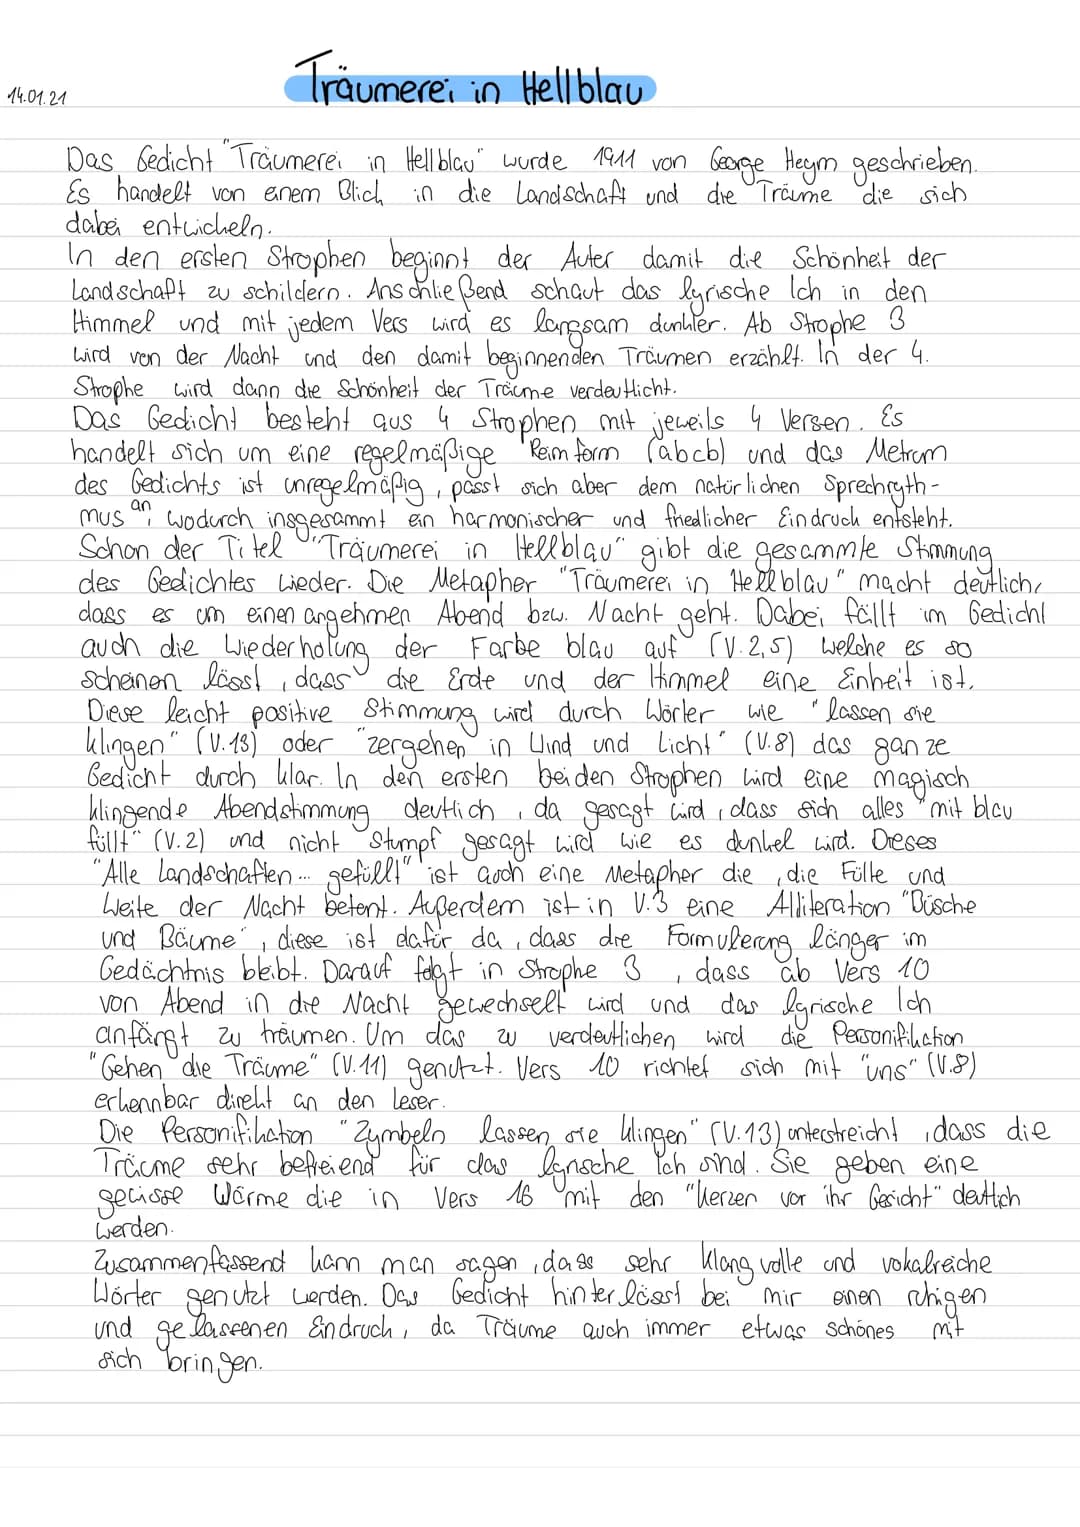 14.01.21
Träumerei in Hellblau
Das Gedicht "Träumerei in Hellblau" wurde 1911 von George Heym geschrieben.
Es handelt von einem Blick in die Landschaft und die Träume die sich
dabei entwickeln.
In den ersten Strophen beginnt der Autor damit die Schönheit der
Landschaft zu schildern. Anschließend schaut das lyrische Ich in den
Himmel und mit jedem Vers wird es langsam dunkler. Ab Strophe 3
wird von der Nacht und den damit beginnenden Träumen erzählt. In der 4.
Strophe wird dann die Schönheit der Träume verdeutlicht.
Das Gedicht besteht aus 4 Strophen mit jeweils 4 Versen. Es
handelt sich um eine regelmäßige Reimform (abcb) und das Metrum
des Gedichts ist unregelmäßig, passt sich aber dem natürlichen Sprechryth-
mus an, wodurch insgesammt ein harmonischer und friedlicher Eindruck entsteht.
Schon der Titel "Träumerei in Hellblau" gibt die gesammte Stimmung
des Gedichtes wieder. Die Metapher "Träumerei in Hellblau" macht deutlich,
dass es um einen angehmen Abend bzw. Nacht geht. Dabei fällt im Gedicht
auch die Wiederholung der Farbe blau auf (V.2,5) welche es so
scheinen lässt, dass die Erde und der Himmel eine Einheit ist.
Diese leicht positive Stimmung wird durch Wörter wie "lassen sie
klingen" (V.13) oder "zergehen in Wind und Licht" (V.8) das ganze
Gedicht durch klar. In den ersten beiden Strophen wird eine magisch
klingende Abendstimmung deutlich, da gesagt wird, dass sich alles "mit blau
füllt" (V.2) und nicht Stumpf gesagt wird wie es dunkel wird. Dieses
"Alle Landschaften... gefüllt" ist auch eine Metapher die, die Fülle und
Weite der Nacht betont. Außerdem ist in V.3 eine Alliteration "Büsche
und Bäume", diese ist dafür da, dass die Formulierung länger im
Gedächtnis bleibt. Darauf folgt in Strophe 3, dass ab Vers 10
von Abend in die Nacht gewechselt wird und das lyrische Ich
anfängt zu träumen. Um das zu verdeutlichen wird die Personifikation
"Gehen die Träume" (V.11) genutzt. Vers 10 richtet sich mit "uns" (V.8)
erkennbar direkt an den Leser.
Die Personifikation "Zymbeln lassen sie klingen" (V.13) unterstreicht, dass die
Träume sehr befreiend für das lyrische Ich sind. Sie geben eine
gewisse Wärme die in Vers 16 mit den "Kerzen vor ihr Gesicht" deutlich
werden.
Zusammenfassend kann man sagen, dass sehr klangvolle und vokalreiche
Wörter genutzt werden. Das Gedicht hinterlässt bei mir einen ruhigen
und gelassenen Eindruck, da Träume auch immer etwas schönes mit
sich bringen.